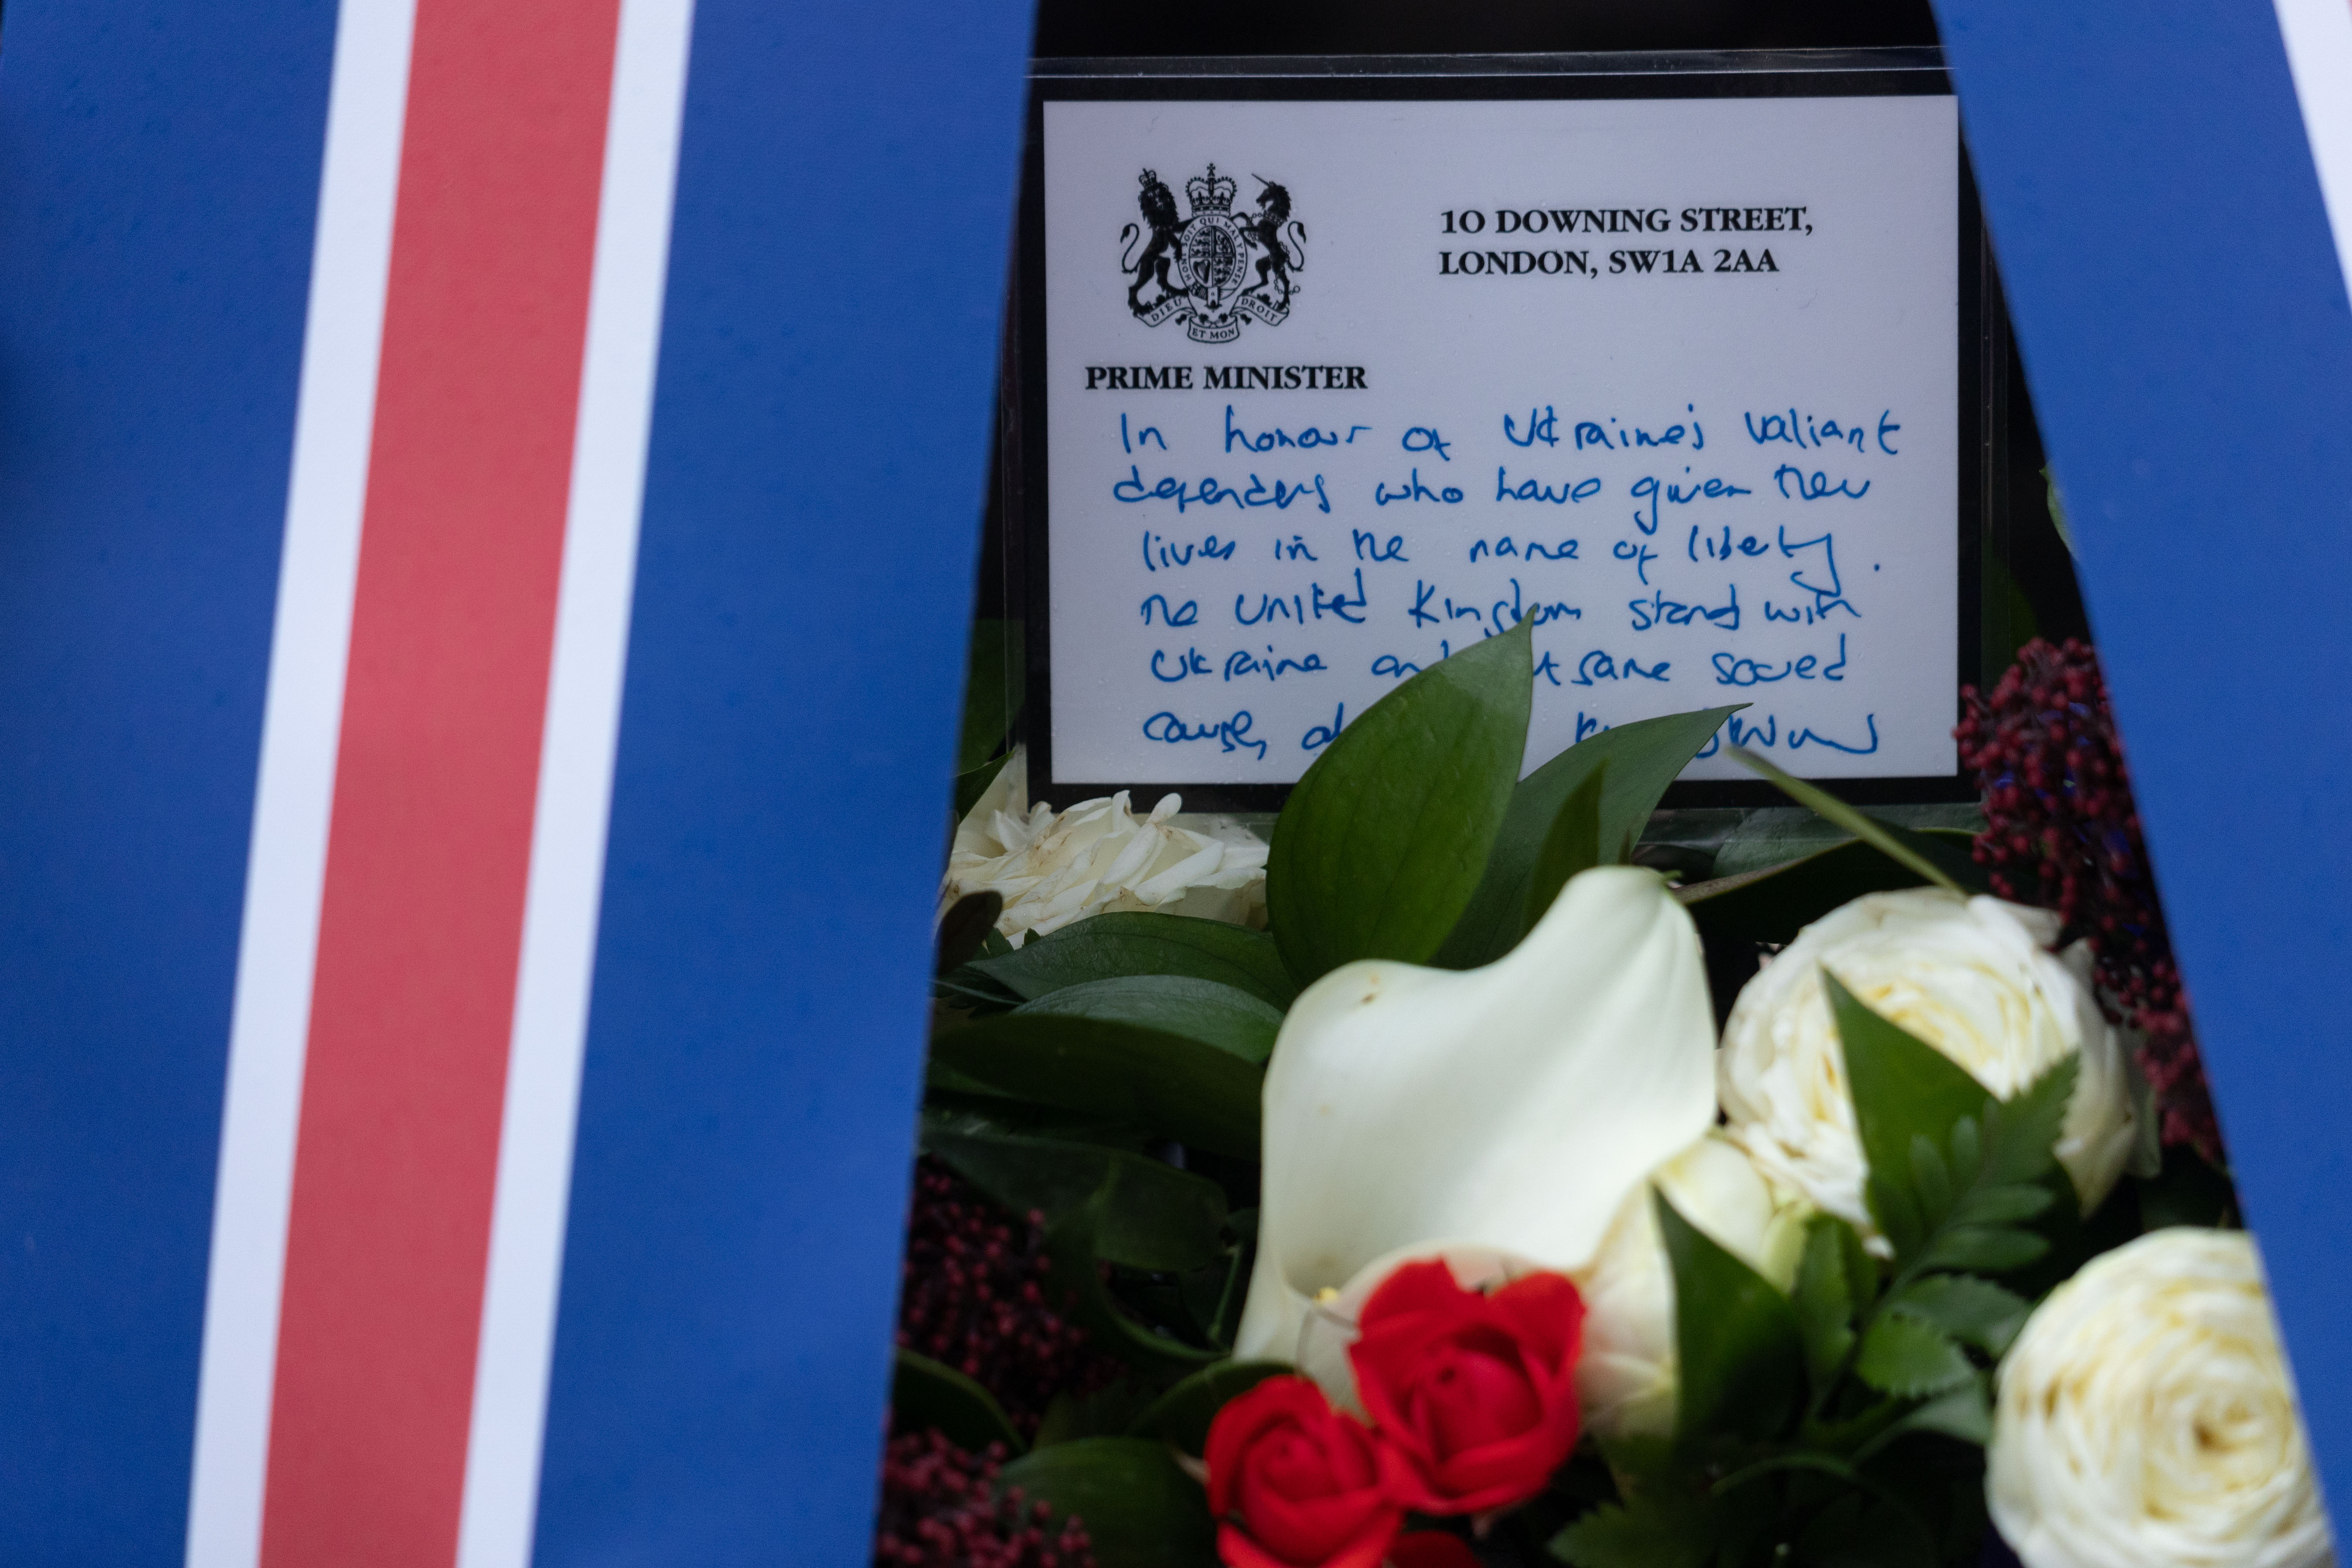 10 DOWNING STREET,
LONDON, SW1A 2AA
HONI SOIT QUI MAL Y PENSE
DIEU ET MON DROIT
PRIME MINISTER
In honour of Ukraine's valiant
defenders who have given their
lives in the name of liberty.
The United Kingdom stand with
Ukraine and
cause,